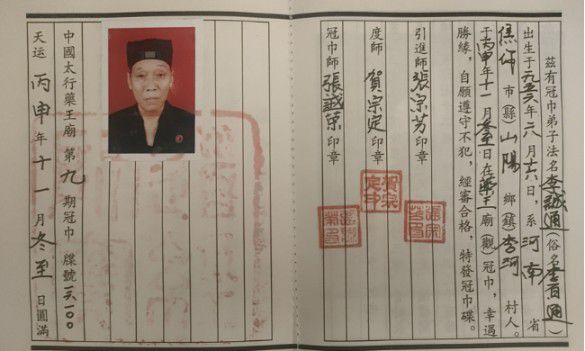 茲有冠巾弟子法名李誠通(俗名李百通)
出生于一九五六年 月十六日,系河南省
焦作市(縣)山陽鄉(鎮)李河村人。
于丙申年十一月冬至日在藥王廟(觀)冠巾,幸遇
勝緣,自願遵守不犯,經審合格,特發冠巾碟。
引進師張宗芳印章
度師賀宗定印章
冠巾師張誠榮印章
賀宗定印
中國太行藥王廟第九期冠巾 牒號
天运丙申年十一月冬至日圓滿